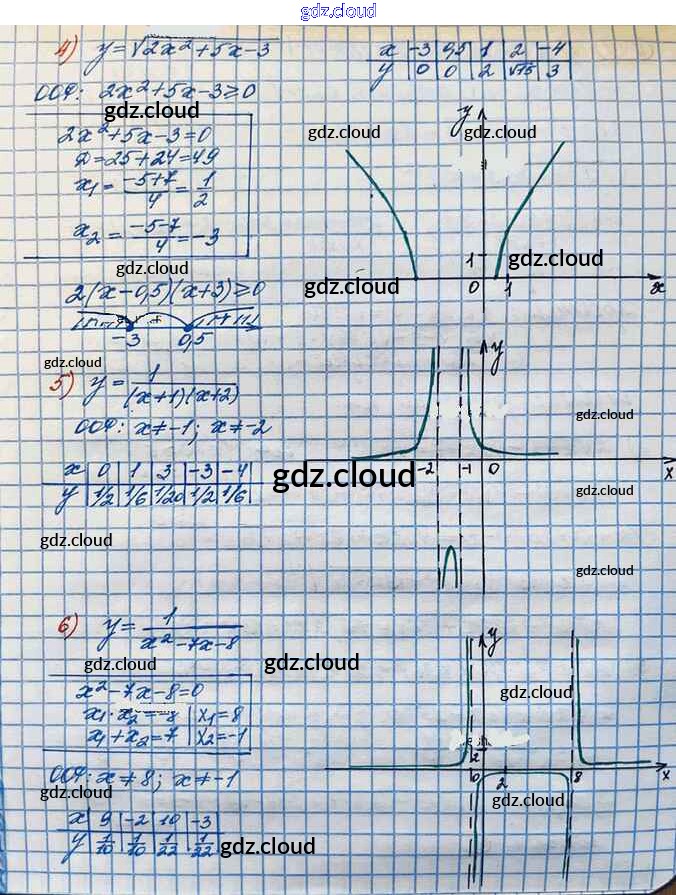 gdz.cloud
4) y = √2x² + 5x - 3
x | -3 | 0,5 | 1 | 2 | -4
y | 0 | 0 | 2 | √15 | 3
ООФ: 2x² + 5x - 3 ≥ 0
gdz.cloud
2x² + 5x - 3 = 0
D = 25 + 24 = 49
x₁ = -5+7/4 = 1/2
x₂ = -5-7/4 = -3
gdz.cloud
2(x - 0,5)(x + 3) ≥ 0
-3 0,5
gdz.cloud
gdz.cloud
y
gdz.cloud
gdz.cloud
1
0 1 x
gdz.cloud
5) y = 1/(x+1)(x+2)
ООФ: x ≠ -1; x ≠ -2
x | 0 | 1 | 3 | -3 | -4
y | 1/2 | 1/6 | 1/20 | 1/2 | 1/6
gdz.cloud
y
gdz.cloud
-2 -1 0 x
gdz.cloud
gdz.cloud
gdz.cloud
6) y = 1/x² - 7x - 8
gdz.cloud
gdz.cloud
x² - 7x - 8 = 0
x₁ · x₂ = -8 | x₁ = 8
x₁ + x₂ = 7 | x₂ = -1
ООФ: x ≠ 8; x ≠ -1
gdz.cloud
x | 9 | -2 | 10 | -3
y | 1/10 | 1/10 | 1/22 | 1/22
gdz.cloud
y
gdz.cloud
2 8 x
gdz.cloud
gdz.cloud